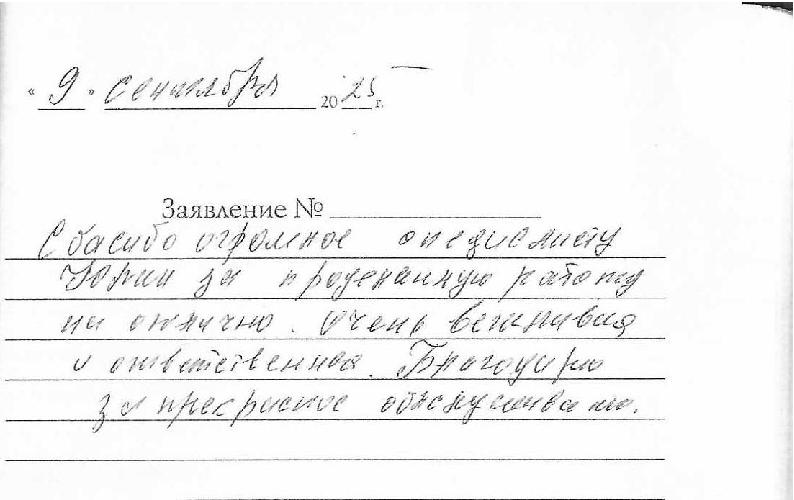 « 9 » сентября 2025 г.
Заявление №
Спасибо огромное специалисту
Юлии за проделанную работу
на отлично. Очень вежливая
и ответственная. Благодарю
за прекрасное обслуживание.